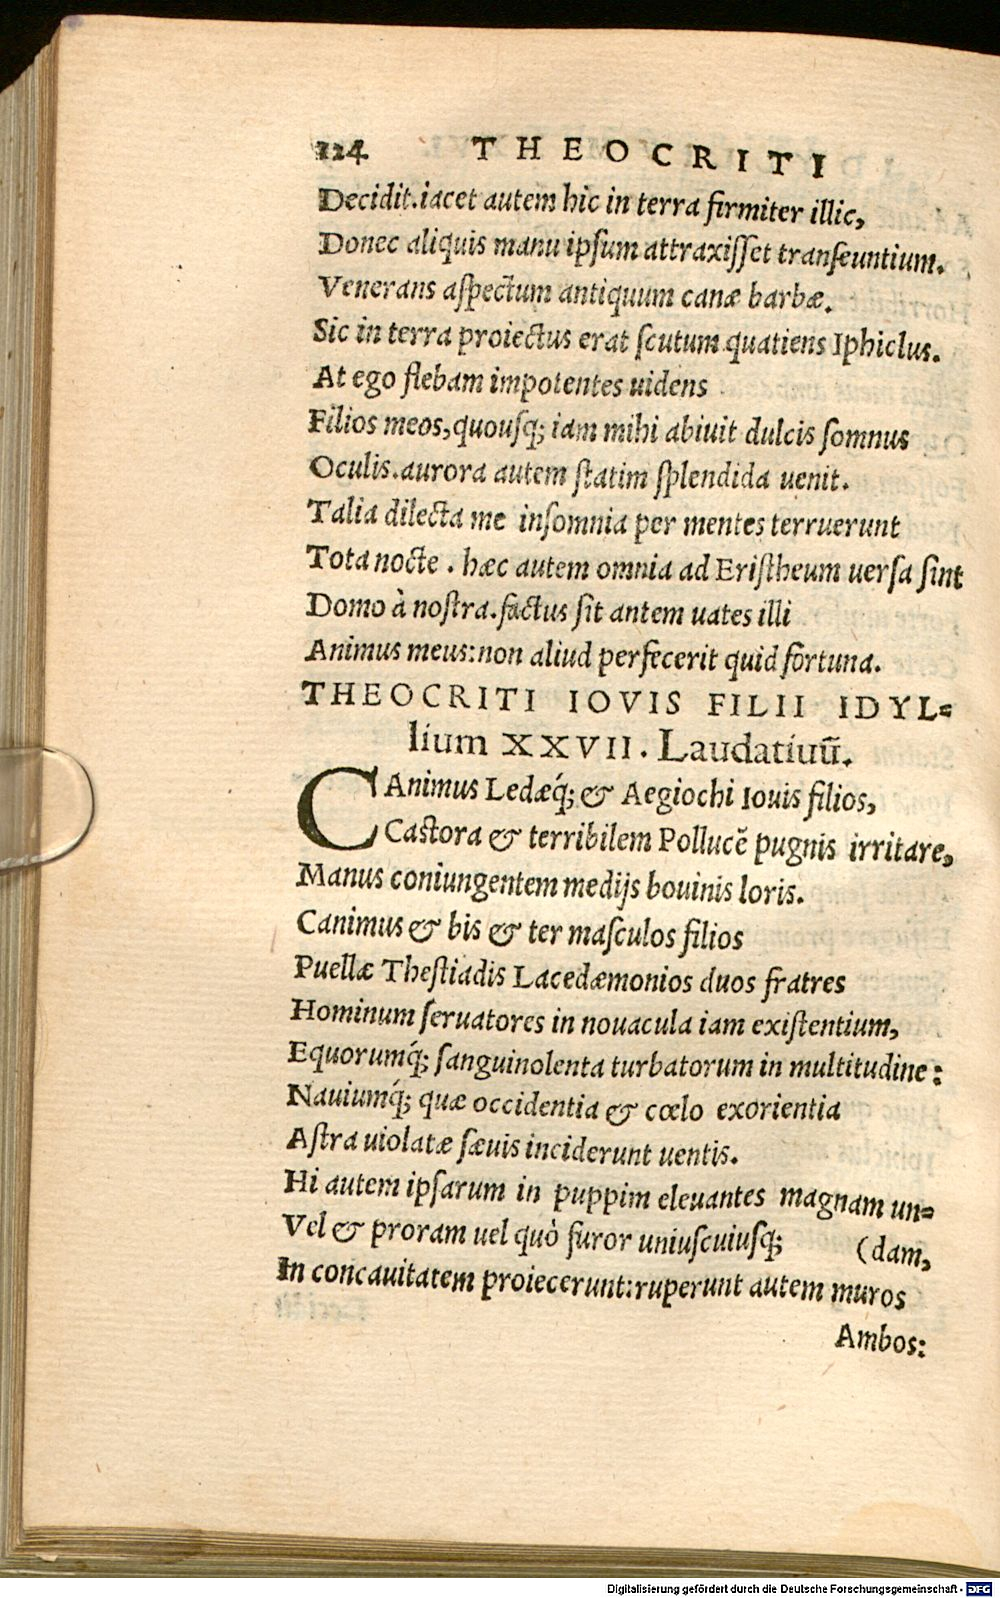 124 THEOCRITI
Decidit. iacet autem hic in terra firmiter illic,
Donec aliquis manu ipſum attraxiſſet tranſeuntium.
Venerans aſpectum antiquum canæ barbæ.
Sic in terra proiectus erat ſcutum quatiens Iphiclus.
At ego flebam impotentes uidens
Filios meos, quouſq; iam mihi abiuit dulcis ſomnus
Oculis. aurora autem ſtatim ſplendida uenit.
Talia dilecta me inſomnia per mentes terruerunt
Tota nocte. hæc autem omnia ad Eriſtheum uerſa ſint
Domo à noſtra. factus ſit antem uates illi
Animus meus: non aliud perfecerit quid fortuna.
THEOCRITI IOVIS FILII IDYL=
lium XXVII. Laudatiuū.
CAnimus Ledæq́; & Aegiochi Iouis filios,
Caſtora & terribilem Pollucē pugnis irritare,
Manus coniungentem medijs bouinis loris.
Canimus & bis & ter maſculos filios
Puellæ Theſtiadis Lacedæmonios duos fratres
Hominum ſeruatores in nouacula iam exiſtentium,
Equorumq́; ſanguinolenta turbatorum in multitudine:
Nauiumq́; quæ occidentia & cœlo exorientia
Aſtra uiolatæ ſæuis inciderunt uentis.
Hi autem ipſarum in puppim eleuantes magnam un=
Vel & proram uel quò furor uniuſcuiuſq; (dam,
In concauitatem proiecerunt: ruperunt autem muros
Ambos:
Digitalisierung gefördert durch die Deutsche Forschungsgemeinschaft - DFG